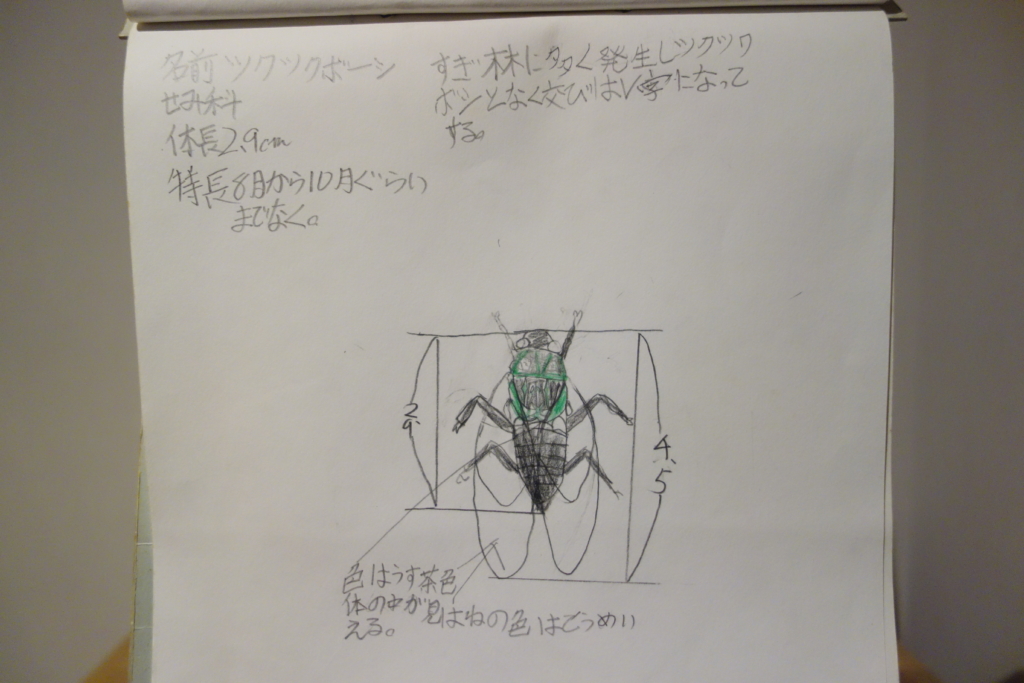 名前 ツクツクボーシ
せみ科
体長2.9cm
特長8月から10月ぐらい
までなく。
すぎ林に多く発生しツクツク
ボシとなく交びはV字になって
する。
2.9
4.5
色はうす茶色
体の中が見
える。
はねの色はどうめい